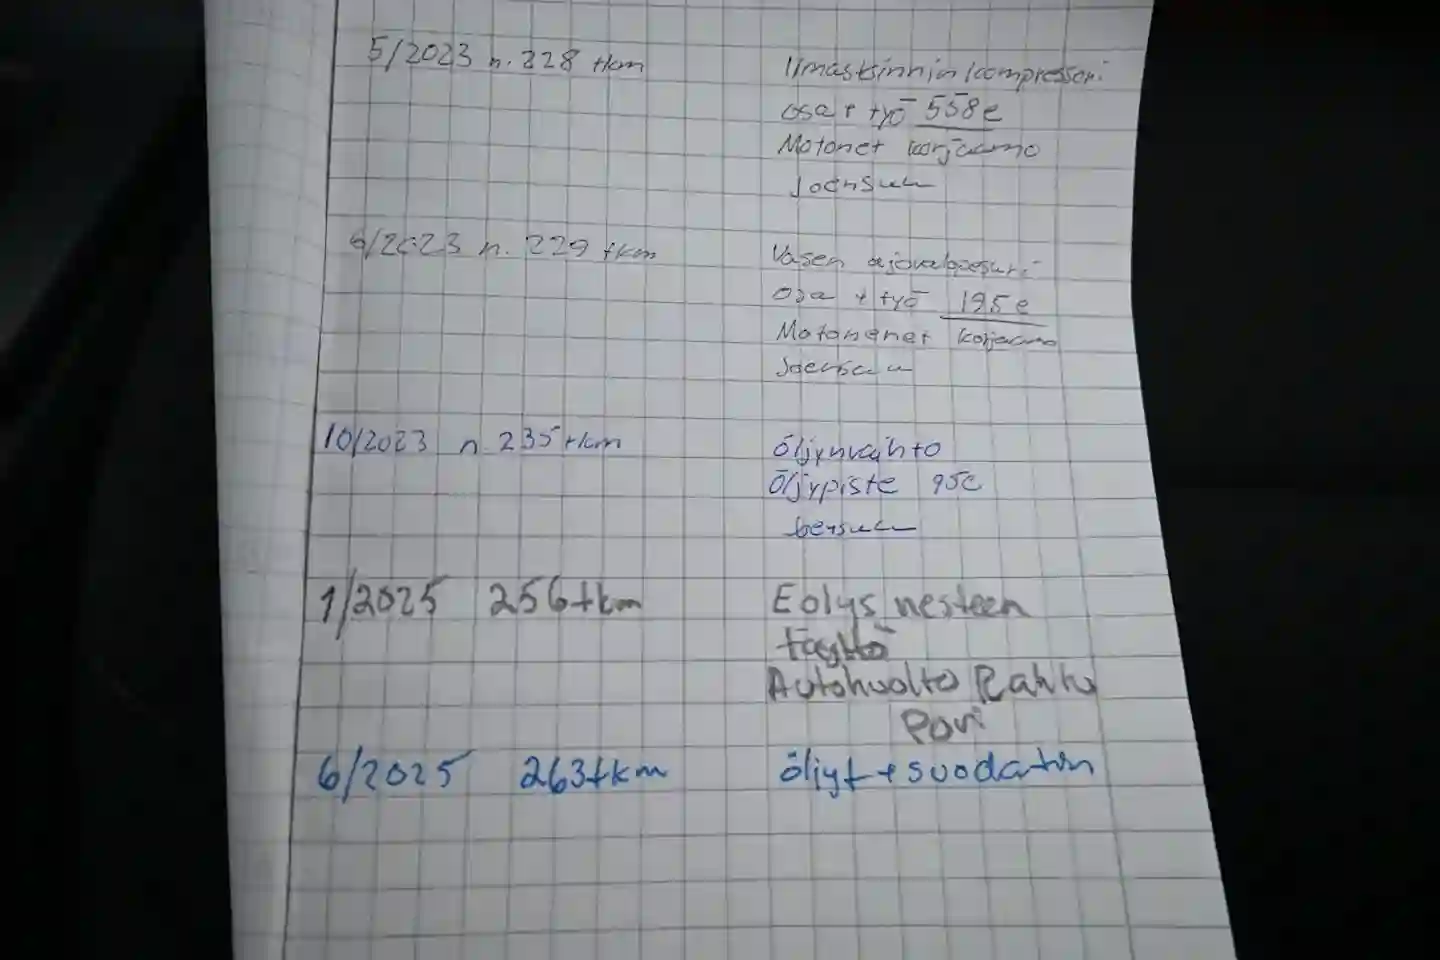 5/2023 n. 228 tkm
Ilmastoinnin kompressori
osa + työ 558e
Motonet korjaamo
Joensuu
6/2023 n. 229 tkm
Vasen ajovalopesuri
Osa + työ 195e
Motonenet korjaamo
Joensuu
10/2023 n. 235 tkm
Öljynvaihto
Öljypiste 95e
Joensuu
1/2025 256tkm
Eolys nesteen
täyttö
Autohuolto Rahtu
Pori
6/2025 263tkm
öljyt + suodatin